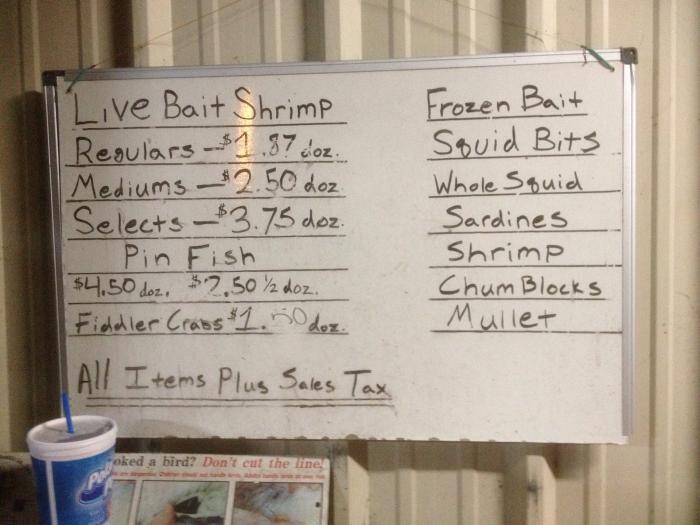 Live Bait Shrimp
Regulars - $1.87 doz.
Mediums - $2.50 doz
Selects - $3.75 doz.
Pin Fish
$4.50 doz. $2.50 ½ doz.
Fiddler Crabs $1.50 doz.
All Items Plus Sales Tax
Frozen Bait
Squid Bits
Whole Squid
Sardines
Shrimp
Chum Blocks
Mullet
ooked a bird? Don't cut the line!